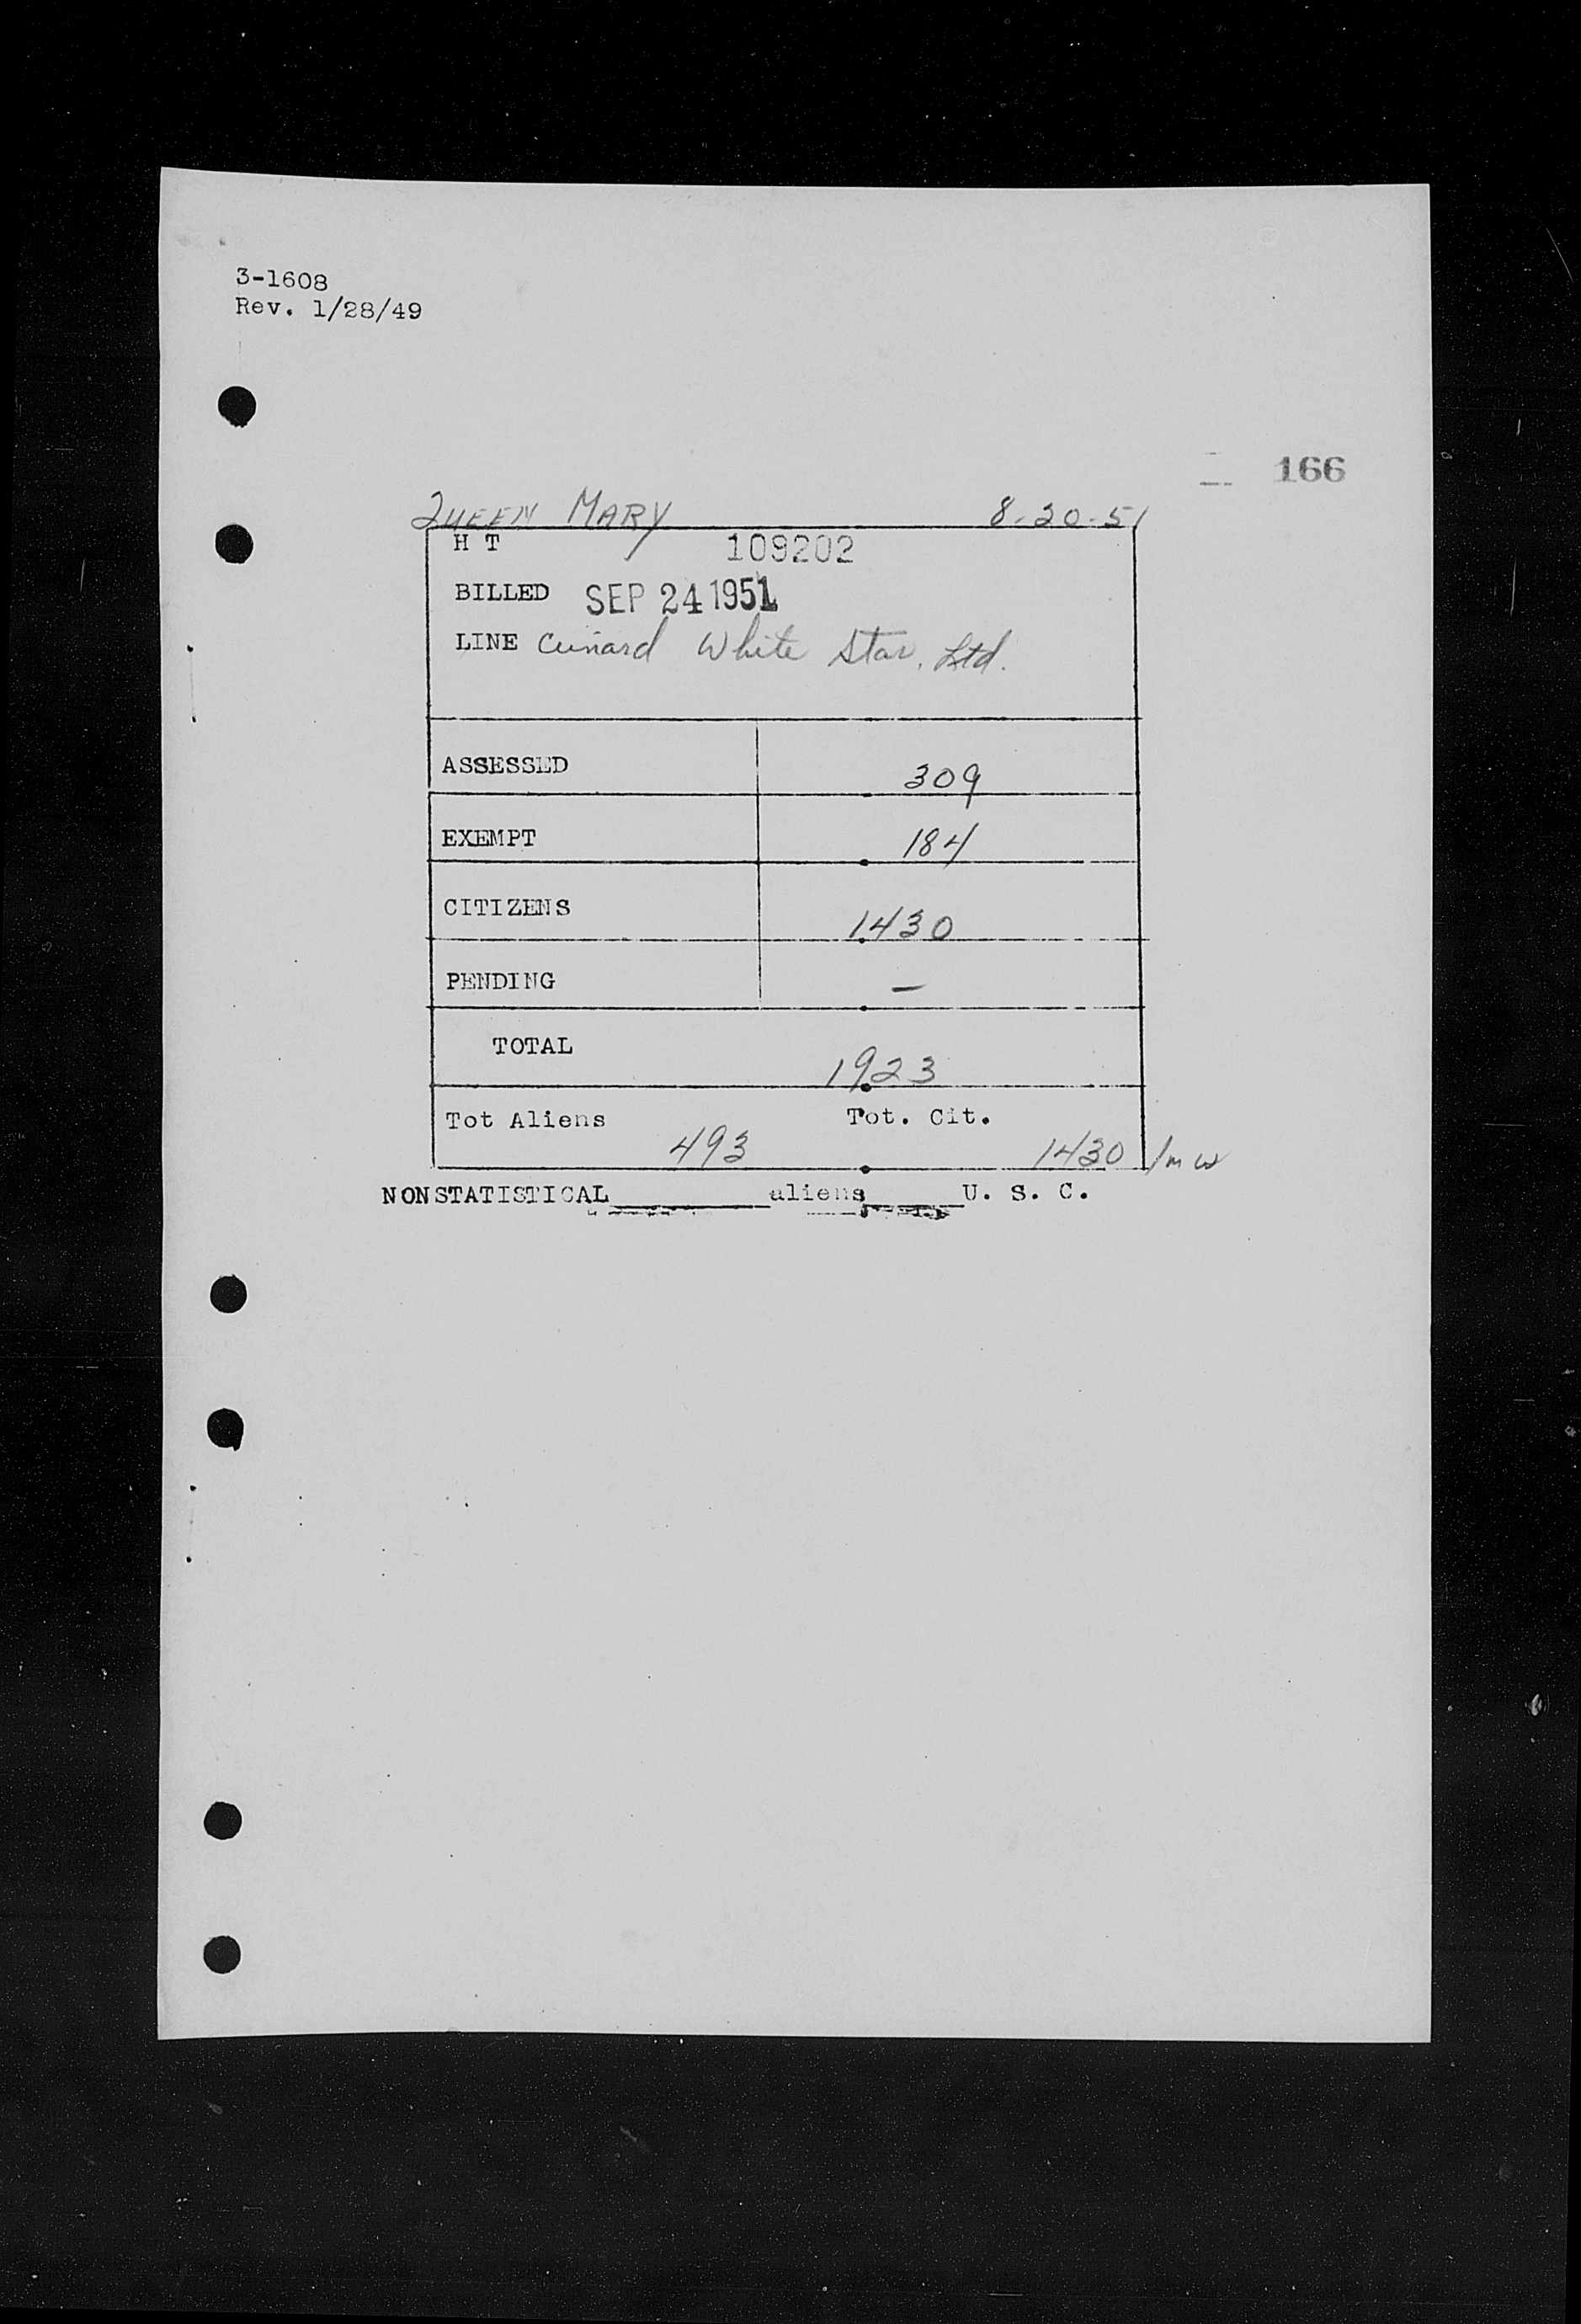 3-1608
Rev. 1/28/49
166
QUEEN MARY 8-20-51
H T 109202
BILLED SEP 24 1951
LINE Cunard White Star, Ltd.
ASSESSED 309
EXEMPT 184
CITIZENS 1430
PENDING –
TOTAL 1923
Tot Aliens 493 Tot. Cit. 1430 /mw
NONSTATISTICAL________aliens_____U. S. C.